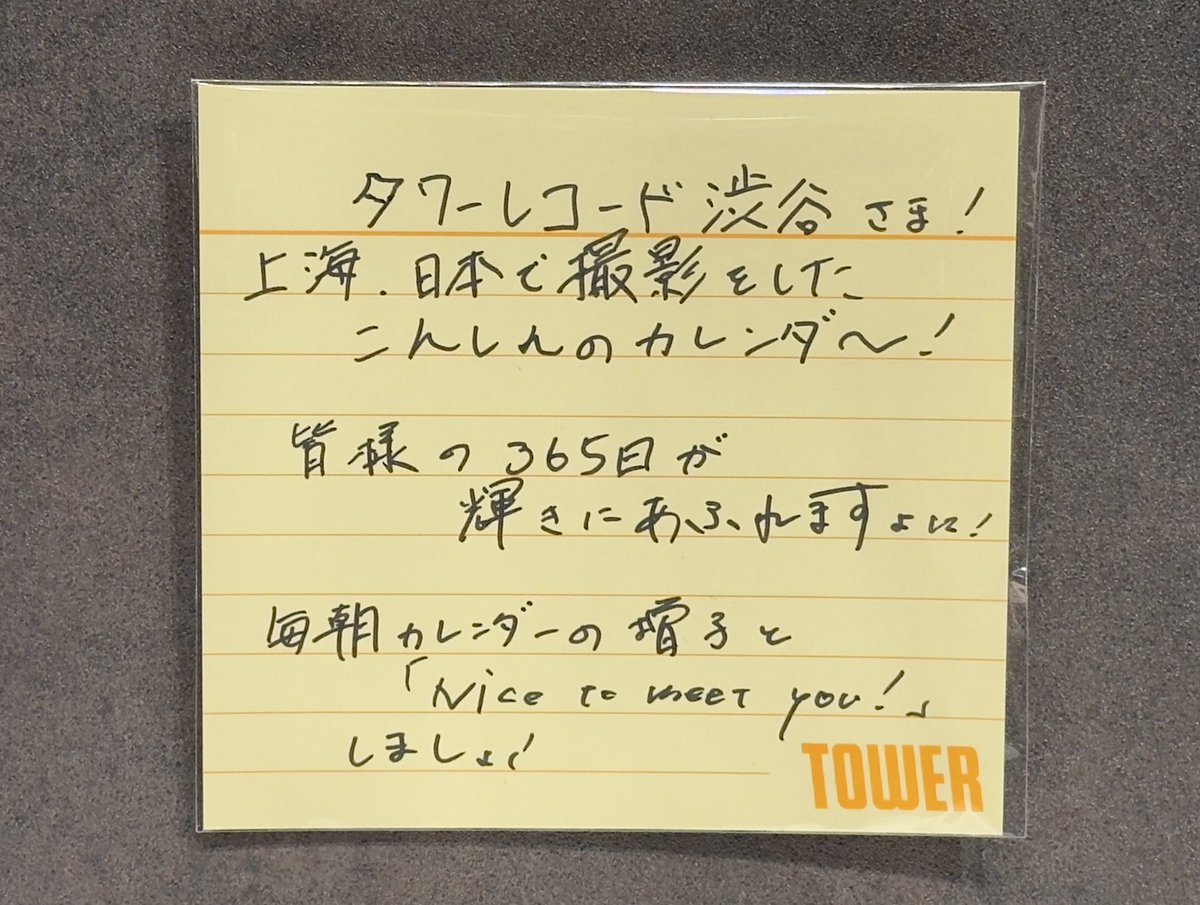 タワーレコード渋谷さま!
上海.日本で撮影をした
こんしんのカレンダ〜!
皆様の365日が
輝きにあふれますよに!
毎朝カレンダーの帽子と
「Nice to meet you!」
しましょ!
TOWER